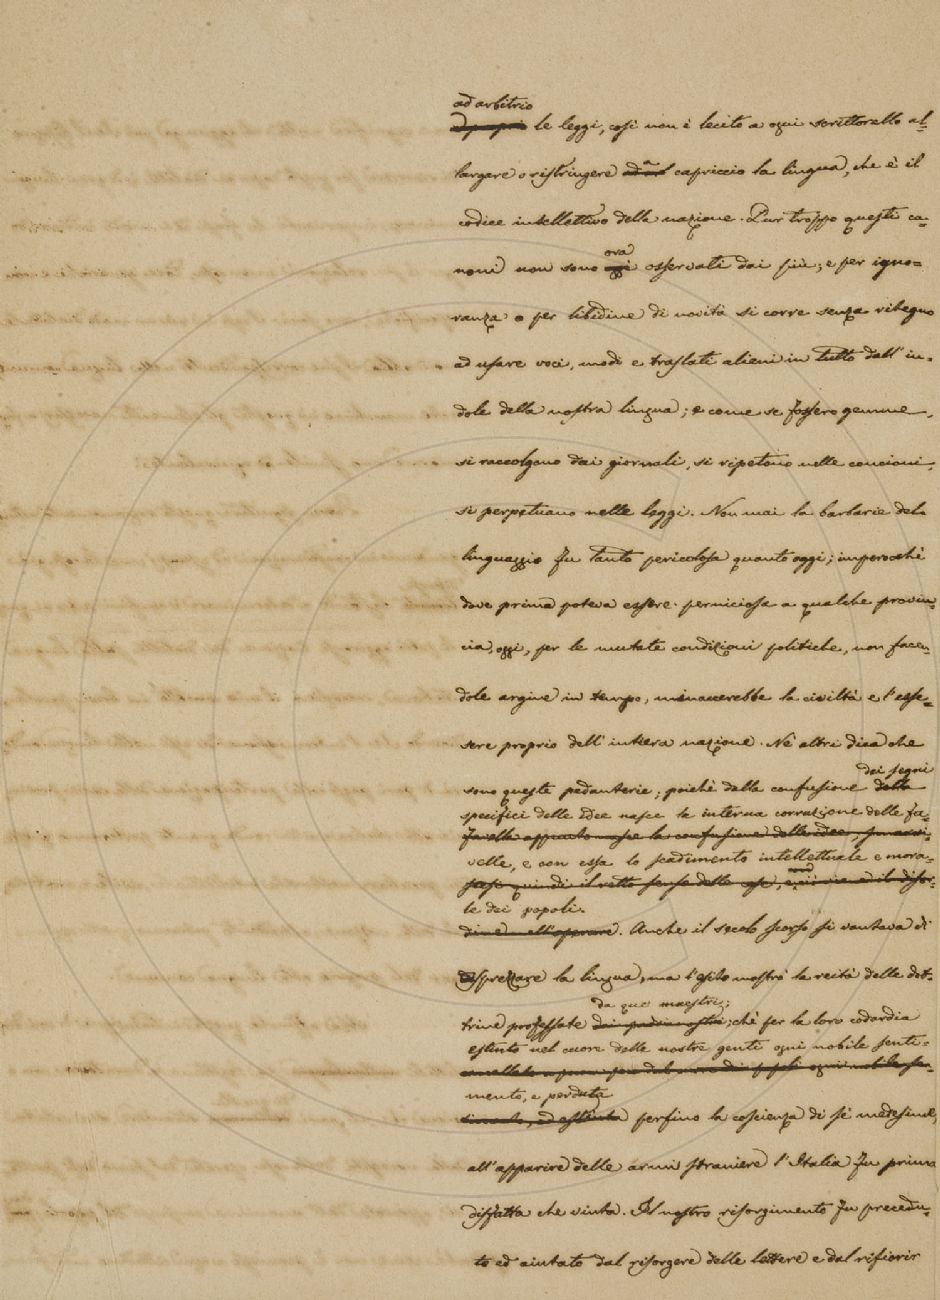 ad arbitrio
le leggi, così non è lecito a ogni scrittorello al-
largare o ristringere a suo capriccio la lingua, che è il
codice intellettivo della nazione. Pur troppo questi ca-
noni non sono
ora
oggi osservati dai più; e per igno-
ranza o per libidine di novità si corre senza ritegno
ad usare voci, modi e traslati alieni in tutto dall'in-
dole della nostra lingua; e come se fossero gemme,
si raccolgono dai giornali, si ripetono nelle concioni,
si perpetuano nelle leggi. Non mai la barbarie del
linguaggio fu tanto pericolosa quanto oggi; imperocchè
dove prima poteva essere perniciosa a qualche provin-
cia, oggi, per le mutate condizioni politiche, non facen-
dole argine in tempo, minaccerebbe la civiltà e l'esse-
sere proprio dell'intiera nazione. Nè altri dica che
dei segni
sono queste pedanterie; poichè dalla confusione della
specifici delle idee nasce la interna corruzione delle fa-
favella appunto nasce la confusione delle idee,
velle, e con essa lo scadimento intellettuale e mora-
quindi il retto senso delle cose, e il disor-
le dei popoli.
dine nell'operare. Anche il secolo scorso si vantava di
disprezzare la lingua, ma l'esito mostrò la reità delle dot-
da que' maestri;
trine professate dai padri nostri; chè per la loro codardia
estinto nel cuore delle nostre genti ogni nobile senti-
dal cuore di popoli ogni nobile sen-
mento, e perduta
timento, ed estinta perfino la coscienza di sè medesime,
all'apparire delle armi straniere l'Italia fu prima
disfatta che vinta. Il nostro risorgimento fu precedu-
to ed aiutato dal risorgere delle lettere e dal rifiorir